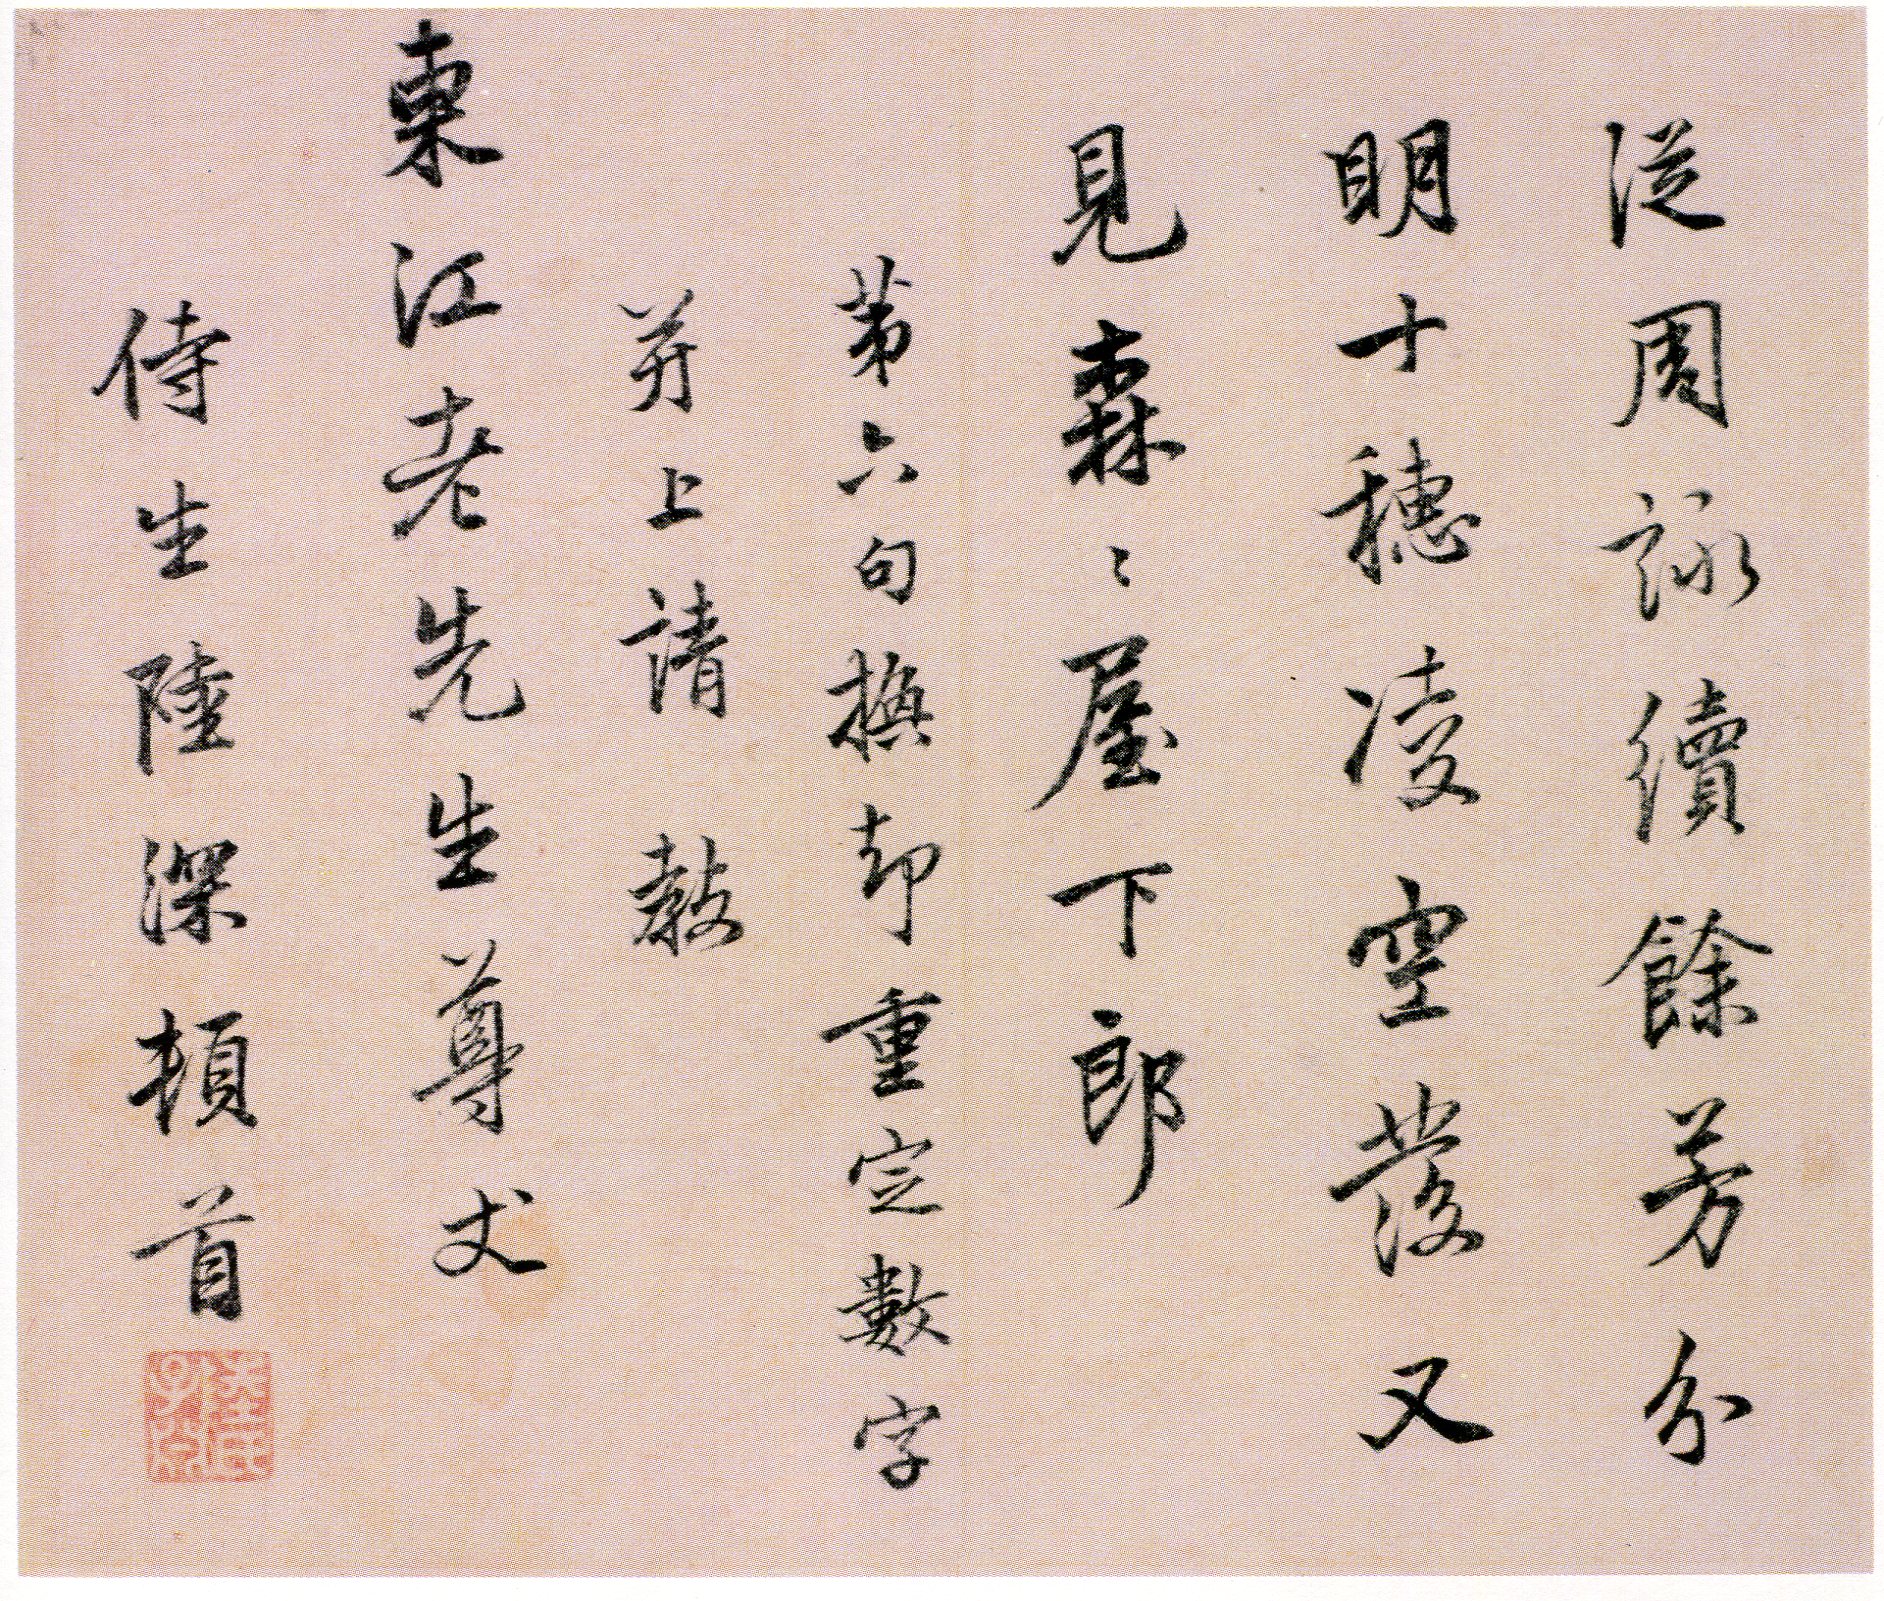 從周詠續餘芳分
明十穗凌空發又
見森〻屋下郎
第六句換却重定數字
并上請 教
東江老先生尊丈
侍生陸深頓首